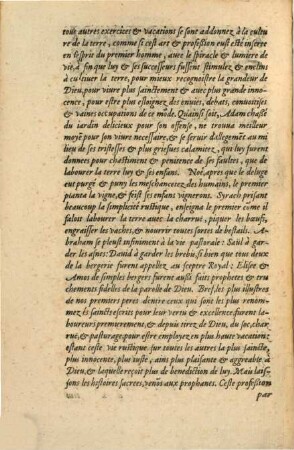 tous autres exercices & vacations se sont addonnez à la cultu
re de la terre, comme si cest art & profession eust esté inseré
en l'esprit du premier homme, avec le spiracle & lumiere de
vie, à fin que luy & ses successeurs fussent stimulez & enclins
à cultiver la terre, pour mieux recognoistre la grandeur de
Dieu, pour viure plus sainctement & avec plus grande inno-
cence, pour estre plus esloignez des enuies, debats, conuoitises
& vaines occupations de ce mode. Qu'ainsi soit, Adam chassé
du iardin delicieux pour son offense, ne trouua meilleur
moyē pour son viure necessaire, & se seruir d'allegemēt au mi
lieu de ses tristesses & plus griefues calamitez, qui luy furent
donnees pour chastiment & penitence de ses fautes, que de
labourer la terre luy & ses enfans. Noé, apres que le deluge
eut purgé & puny les meschancetez des humains, le premier
planta la vigne, & feist ses enfans vignerons. Syrach prisant
beaucoup la simplicité rustique, enseigna le premier cōme il
faloit labourer la terre auec la charruë, piquer les bœufs,
engraisser les vaches, & nourrir toutes sortes de bestails. A-
braham se pleust infiniment à la vie pastorale: Saül à gar-
der les asnes: Dauid à garder les brebis, si bien que tous deux
de la bergerie furent appellez au sceptre Royal: Elisée &
Amos de simples bergers furent aussi faits prophetes & tru
chemens fidelles de la parolle de Dieu. Bref les plus illustres
de nos premiers peres & entre ceux qui sont les plus renom-
mez és sainctes escrits pour leur vertu & excellence, furent la-
boureurs premierement, & depuis tirez de Dieu, du soc, char-
ruë, & pasturage, pour estre employez en plus haute vacation:
estant ceste vie rustique sur toutes les autres la plus saincte,
plus innocente, plus iuste, ains plus plaisante & aggreable à
Dieu, & laquelle reçoit plus de benediction de luy. Mais lais-
sons les histoires sacrees, venōs aux prophanes. Ceste profession
par